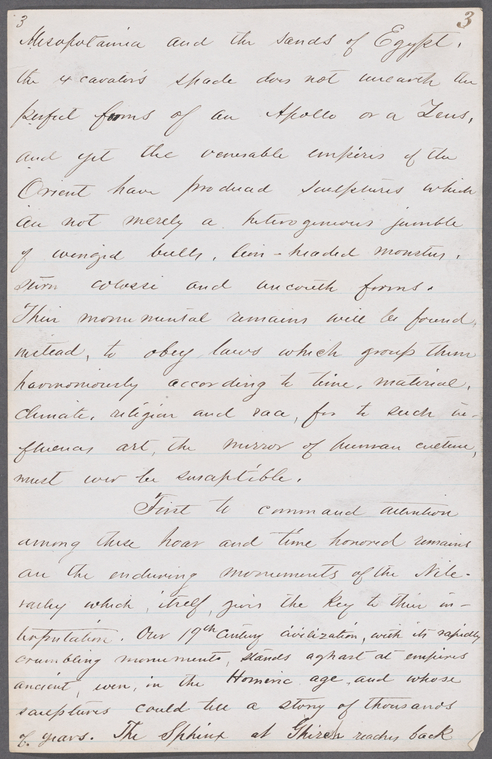 3 3
Mesopotamia and the sands of Egypt,
the excavators spade does not unearth the
perfect forms of an Apollo or a Zeus,
and yet the venerable empires of the
Orient have produced sculptures which
are not merely a heterogenious jumble
of winged bulls, lion-headed monsters,
stern colossi and uncouth forms.
Their monumental remains will be found,
instead, to obey laws which group them
harmoniously according to time, material,
climate, religion and race, for to such in-
fluences art, the mirror of human culture,
must ever be susceptible.
First to command attention
among these hoar and time honored remains
are the enduring monuments of the Nile-
valley which, itself, gives the key to their in-
terpretation. Our 19th Century civilization, with its rapidly
crumbling monuments, stands aghast at empires
ancient, even, in the Homeric age, and whose
sculptures could tell a story of thousands
of years. The Sphinx at Ghizeh reaches back